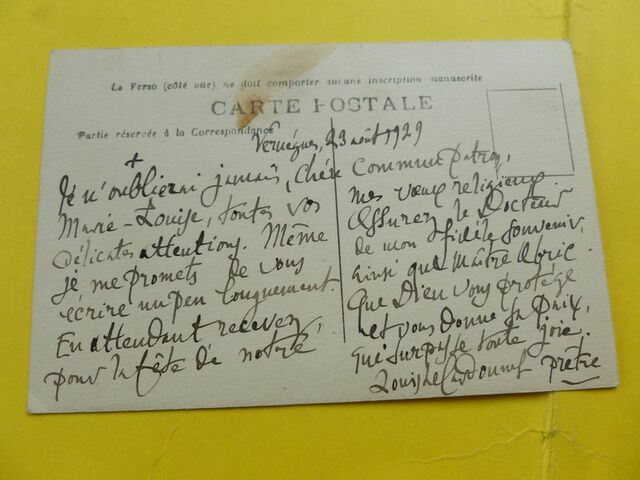 Le Verso (côté vue) ne doit comporter aucune inscription manuscrite
CARTE POSTALE
Partie réservée à la Correspondance
Vernègues, 23 août 1929
+
Je n'oublierai jamais, chère
Marie-Louise, toutes vos
délicates attentions. Même
je me promets de vous
écrire un peu longuement
En attendant recevez,
pour la fête de notre
commune patron,
mes vœux religieux
Assurez le Docteur
de mon fidèle souvenir,
ainsi que Maître Abric.
Que Dieu vous protège
et vous donne sa paix,
qui surpasse toute joie.
Louis Le Cardonnel prêtre